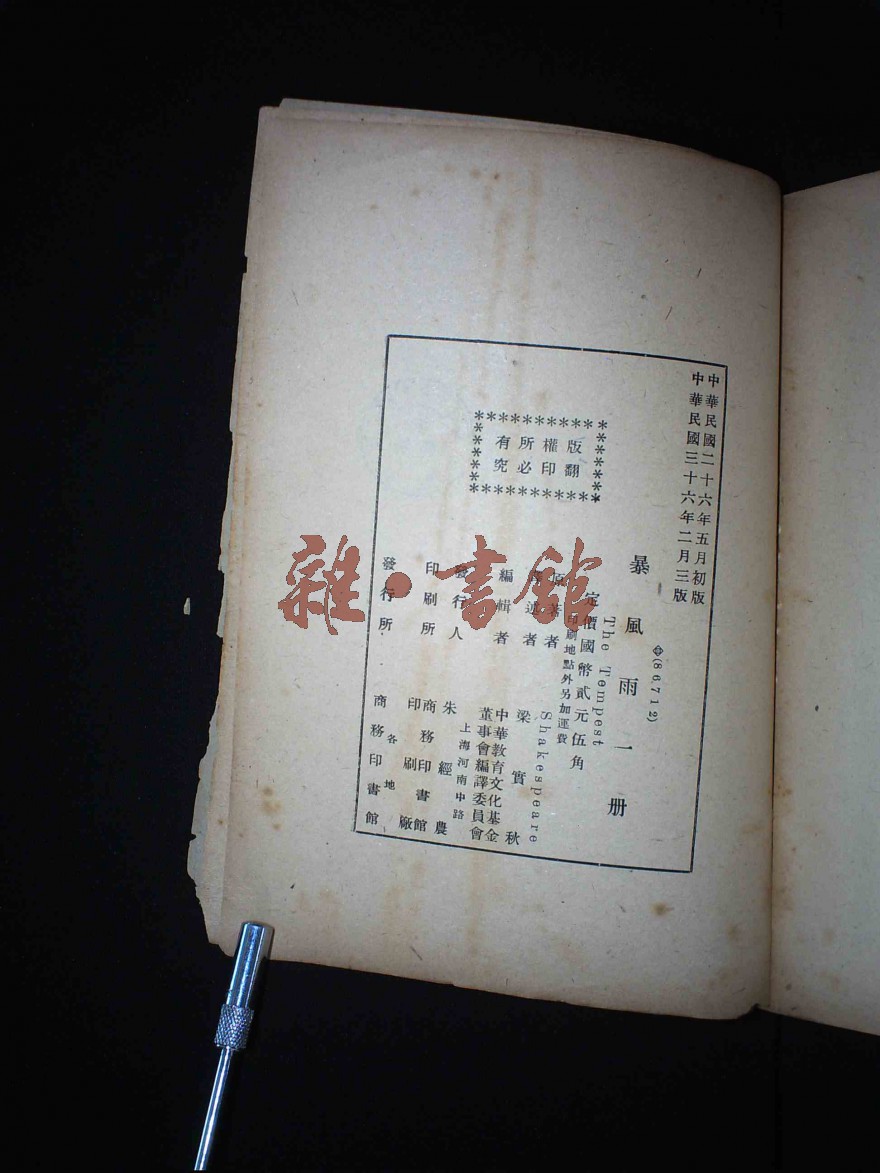 中華民國二十六年五月初版
中華民國三十六年二月三版
(86712)
暴風雨一册
The Tempest
定價國幣貳元伍角
印刷地點外另加運費
原著者 Shakespeare
譯述者 梁實秋
編輯者 中華教育文化基金董事會編譯委員會
發行人 朱經農
上海河南中路
印刷所 商務印書館印刷廠
發行所 各地商務印書館
版權所有
翻印必究
雜·書館